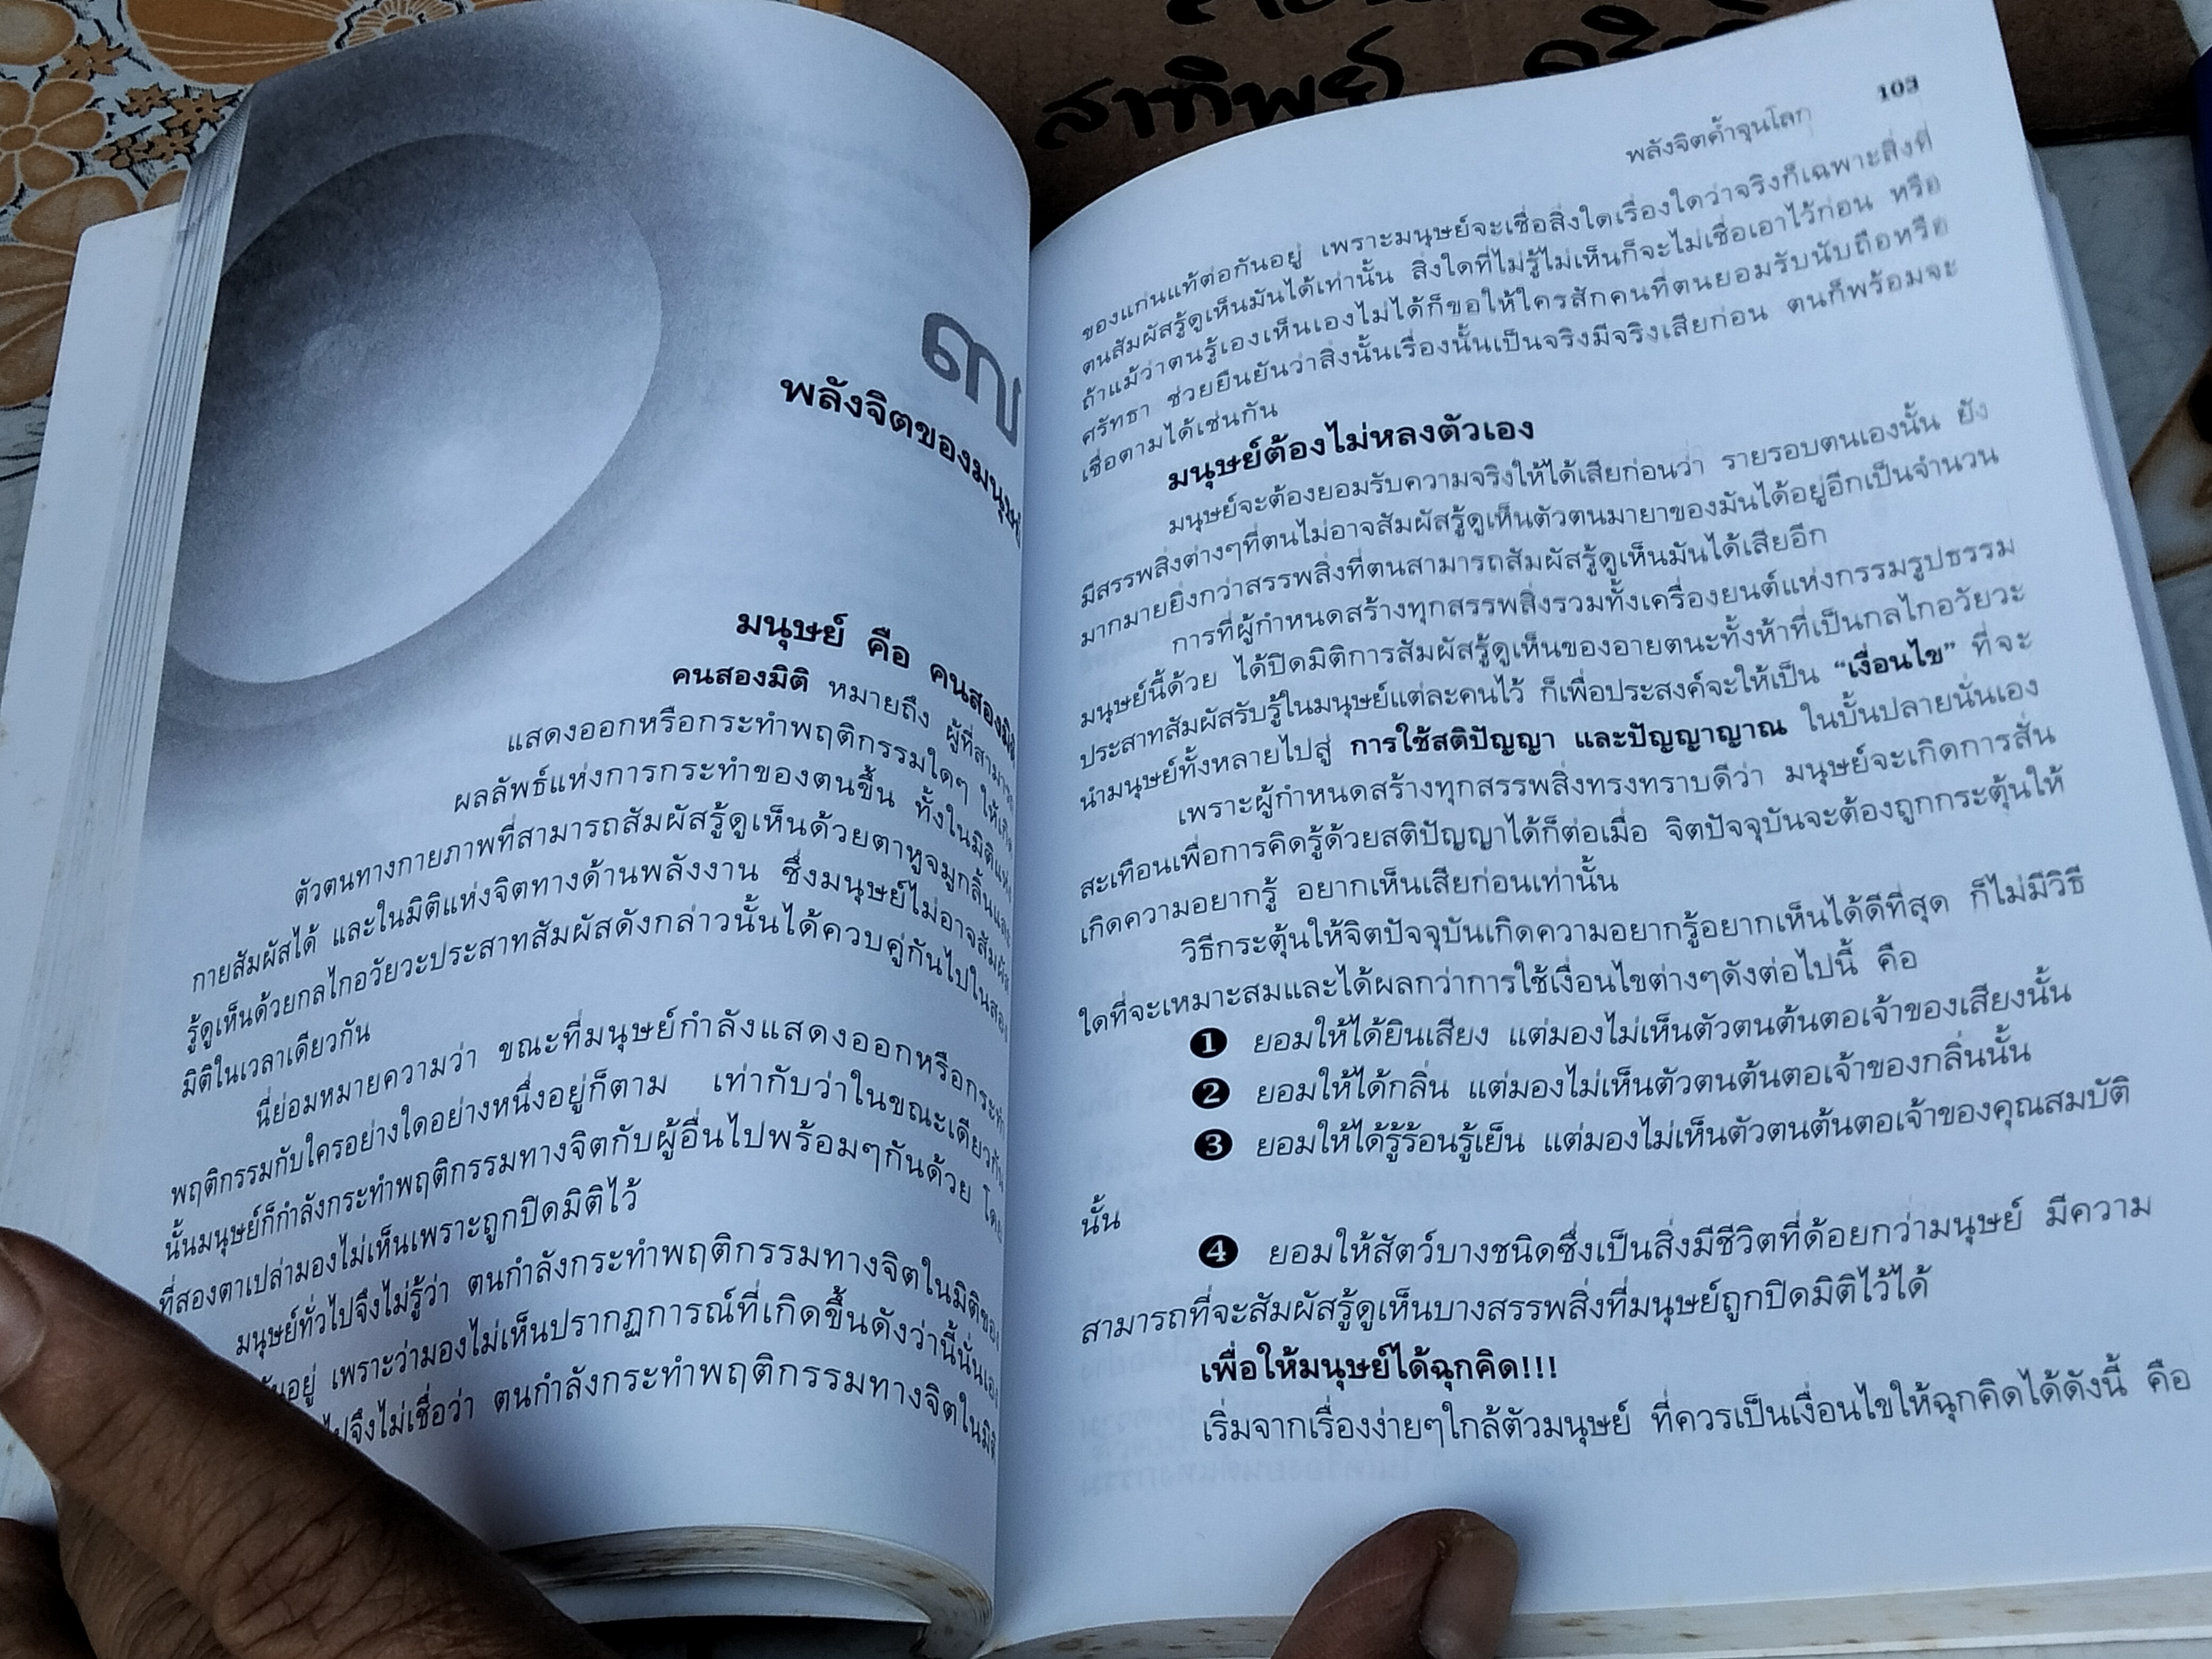 สาทิพย์
๗
พลังจิตของมนุษย์
มนุษย์ คือ คนสองมิติ
คนสองมิติ หมายถึง ผู้ที่สามารถ
แสดงออกหรือกระทำพฤติกรรมใดๆ ให้เกิด
ผลลัพธ์แห่งการกระทำของตนขึ้น ทั้งในมิติแห่ง
ตัวตนทางกายภาพที่สามารถสัมผัสรู้ดูเห็นด้วยตาหูจมูกลิ้นและ
กายสัมผัสได้ และในมิติแห่งจิตทางด้านพลังงาน ซึ่งมนุษย์ไม่อาจสัมผัส
รู้ดูเห็นด้วยกลไกอวัยวะประสาทสัมผัสดังกล่าวนั้นได้ควบคู่กันไปในสอง
มิติในเวลาเดียวกัน
นี่ย่อมหมายความว่า ขณะที่มนุษย์กำลังแสดงออกหรือกระทำ
พฤติกรรมกับใครอย่างใดอย่างหนึ่งอยู่ก็ตาม เท่ากับว่าในขณะเดียวกัน
นั้นมนุษย์ก็กำลังกระทำพฤติกรรมทางจิตกับผู้อื่นไปพร้อมๆกันด้วย โดย
ที่สองตาเปล่ามองไม่เห็นเพราะถูกปิดมิติไว้
มนุษย์ทั่วไปจึงไม่รู้ว่า ตนกำลังกระทำพฤติกรรมทางจิตในมิติของ
อยู่ เพราะว่ามองไม่เห็นปรากฏการณ์ที่เกิดขึ้นดังว่านี้นั่นเอง
ไปจึงไม่เชื่อว่า ตนกำลังกระทำพฤติกรรมทางจิตในมิติ
พลังจิตค้ำจุนโลก 103
ของแก่นแท้ต่อกันอยู่ เพราะมนุษย์จะเชื่อสิ่งใดเรื่องใดว่าจริงก็เฉพาะสิ่งที่
ตนสัมผัสรู้ดูเห็นมันได้เท่านั้น สิ่งใดที่ไม่รู้ไม่เห็นก็จะไม่เชื่อเอาไว้ก่อน หรือ
ถ้าแม้ว่าตนรู้เองเห็นเองไม่ได้ก็ขอให้ใครสักคนที่ตนยอมรับนับถือหรือ
ศรัทธา ช่วยยืนยันว่าสิ่งนั้นเรื่องนั้นเป็นจริงมีจริงเสียก่อน ตนก็พร้อมจะ
เชื่อตามได้เช่นกัน
มนุษย์ต้องไม่หลงตัวเอง
มนุษย์จะต้องยอมรับความจริงให้ได้เสียก่อนว่า รายรอบตนเองนั้น ยัง
มีสรรพสิ่งต่างๆที่ตนไม่อาจสัมผัสรู้ดูเห็นตัวตนมายาของมันได้อยู่อีกเป็นจำนวน
มากมายยิ่งกว่าสรรพสิ่งที่ตนสามารถสัมผัสรู้ดูเห็นมันได้เสียอีก
การที่ผู้กำหนดสร้างทุกสรรพสิ่งรวมทั้งเครื่องยนต์แห่งกรรมรูปธรรม
มนุษย์นี้ด้วย ได้ปิดมิติการสัมผัสรู้ดูเห็นของอายตนะทั้งห้าที่เป็นกลไกอวัยวะ
ประสาทสัมผัสรับรู้ในมนุษย์แต่ละคนไว้ ก็เพื่อประสงค์จะให้เป็น “เงื่อนไข” ที่จะ
นำมนุษย์ทั้งหลายไปสู่ การใช้สติปัญญา และปัญญาญาณ ในบั้นปลายนั่นเอง
เพราะผู้กำหนดสร้างทุกสรรพสิ่งทรงทราบดีว่า มนุษย์จะเกิดการสั่น
สะเทือนเพื่อการคิดรู้ด้วยสติปัญญาได้ก็ต่อเมื่อ จิตปัจจุบันจะต้องถูกกระตุ้นให้
เกิดความอยากรู้ อยากเห็นเสียก่อนเท่านั้น
วิธีกระตุ้นให้จิตปัจจุบันเกิดความอยากรู้อยากเห็นได้ดีที่สุด ก็ไม่มีวิธี
ใดที่จะเหมาะสมและได้ผลกว่าการใช้เงื่อนไขต่างๆดังต่อไปนี้ คือ
❶ ยอมให้ได้ยินเสียง แต่มองไม่เห็นตัวตนต้นตอเจ้าของเสียงนั้น
❷ ยอมให้ได้กลิ่น แต่มองไม่เห็นตัวตนต้นตอเจ้าของกลิ่นนั้น
❸ ยอมให้ได้รู้ร้อนรู้เย็น แต่มองไม่เห็นตัวตนต้นตอเจ้าของคุณสมบัติ
นั้น
❹ ยอมให้สัตว์บางชนิดซึ่งเป็นสิ่งมีชีวิตที่ด้อยกว่ามนุษย์ มีความ
สามารถที่จะสัมผัสรู้ดูเห็นบางสรรพสิ่งที่มนุษย์ถูกปิดมิติไว้ได้
เพื่อให้มนุษย์ได้ฉุกคิด!!!
เริ่มจากเรื่องง่ายๆใกล้ตัวมนุษย์ ที่ควรเป็นเงื่อนไขให้ฉุกคิดได้ดังนี้ คือ